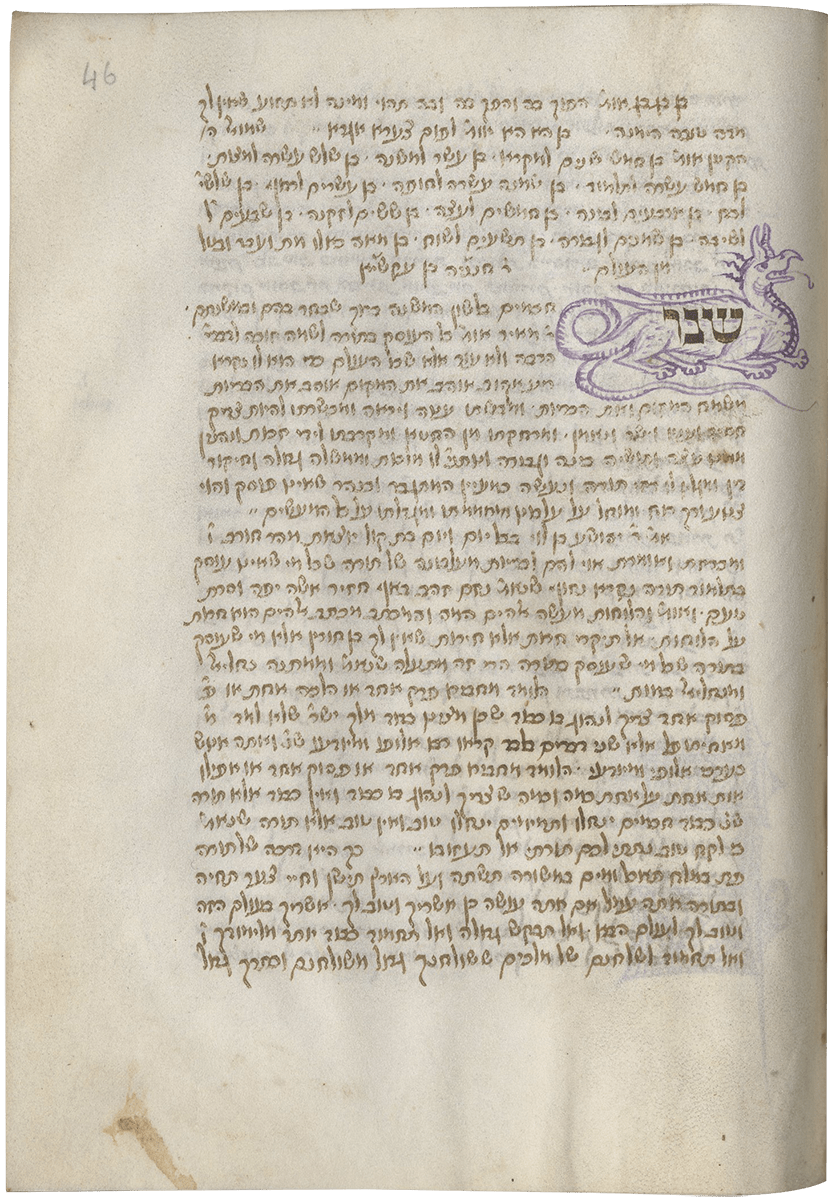 46
בן בג בג אומ' הפוך בה והפך בה ובה תהוי ומינה לא תזוע שאין לך
מדה טובה הימנה בן הא הא אומ' לפום צערא אגרא שמואל ה'
הקטן אומ' בן חמש שנים למקרא בן עשר למשנה בן שלש עשרה למצות
בן חמש עשרה לתלמוד בן שמנה עשרה לחופה בן עשרים לרדוף בן שלשי'
לכח בן ארבעים לבינה בן חמשים לעצה בן ששים לזקנה בן שבעים ל
לשיבה בן שמנים לגבורה בן תשעים לשוח בן מאה כאלו מת ועבר ובטל
מן העולם ר' חנניה בן עקשיא
שנו
חכמים בלשון המשנה ברוך שבחר בהם ובמשנתם
ר' מאיר אומ' כל העוסק בתורה לשמה זוכה לדברי'
הרבה ולא עוד אלא שכל העולם כדי הוא לו נקרא
ריע אהוב אוהב את המקום אוהב את הבריות
משמח המקום ואת הבריות ומלבשתו ענוה ויראה ומכשרתו להיות צדיק
חסיד וישר ונאמן ומרחקתו מן החטא ומקרבתו לידי זכות ונהנין
ממנו עצה ותושיה בינה וגבורה ונותנ' לו מלכות וממשלה גדולה וחיקור
דין ומגלין לו רזי תורה ונעשה כמעיין המתגבר וכנהר שאינו פוסק והוי
צנוע וארך רוח ומוחל על עלבונו ומגדלתו ומרוממתו על כל המעשים
אמ' ר' יהושע בן לוי בכל יום ויום בת קול יוצאת מהר חורב ו
ומכרזת ואומרת אוי להם לבריות מעלבונה של תורה שכל מי שאינו עוסק
בתלמוד תורה נקרא נזוף שנאמ' נזם זהב באף חזיר אשה יפה וסרת
טעם ואומ' והלוחות מעשה אלהים המה והמכתב מכתב אלהים הוא חרות
על הלוחות אל תיקרי חרות אלא חירות שאין לך בן חורין אלא מי שעוסק
בתורה שכל מי שעוסק בתורה הרי זה מתעלה שנאמ' וממתנה נחליאל
ומנחליאל במות הלומד מחבירו פרק אחד או הלכה אחת או פ'
פסוק אחד צריך לנהוג בו כבוד שכן מצינו בדוד מלך ישר' שלא למד מ'
מאחיתופל אלא שני דברים בלבד קראו רבו אלופו ומיודעו שנ' ואתה אנוש
כערכי אלופי ומיודעי הלומד מחבירו פרק אחד או פסוק אחד או אפילו
אות אחת על אחת כמה וכמה שצריך לנהוג בו כבוד ואין כבוד אלא תורה
שנ' כבוד חכמים ינחלו ותמימים ינחלו טוב ואין טוב אלא תורה שנאמ'
כי לקח טוב נתתי לכם תורתי אל תעזובו כך היא דרכה של תורה
פת במלח תאכל ומים במשורה תשתה ועל הארץ תישן וחיי צער תחיה
ובתורה אתה עמל אם אתה עושה כן אשריך וטוב לך אשריך בעולם הזה
וטוב לך לעולם הבא ואל תבקש גדולה ואל תחמוד כבוד יותר מלימודך
ואל תתאוה לשולחנם של מלכים ששולחנך גדול משולחנם וכתרך גדול